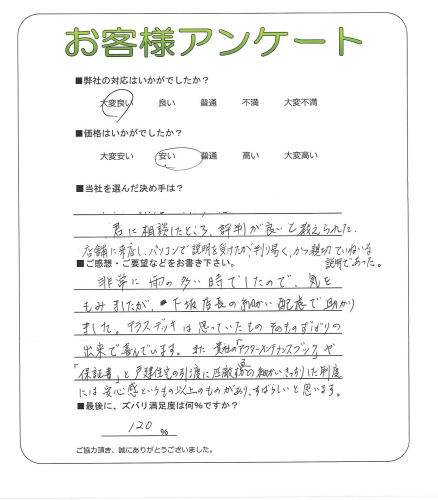 お客様アンケート
■弊社の対応はいかがでしたか？
大変良い 良い 普通 不満 大変不満
■価格はいかがでしたか？
大変安い 安い 普通 高い 大変高い
■当社を選んだ決め手は？
君に相談したところ、評判が良いと教えられた。
店舗に来店し、パソコンで説明を受けたが、判り易く、かつ親切ていねいな
説明であった。
■ご感想・ご要望などをお書き下さい。
非常に雨の多い時でしたので、気を
もみましたが、下坂店長の細かい配慮で助かり
ました。テラスデッキは思っていたものそのものずばりの
出来で喜んでいます。また貴社の「アフターメンテナンスブック」や
「保証書」と戸建住宅の引渡に匹敵する程の細かいきっちりした制度
には安心感というもの以上のものがあり、すばらしいと思います。
■最後に、ズバリ満足度は何％ですか？
120 ％
ご協力頂き、誠にありがとうございました。